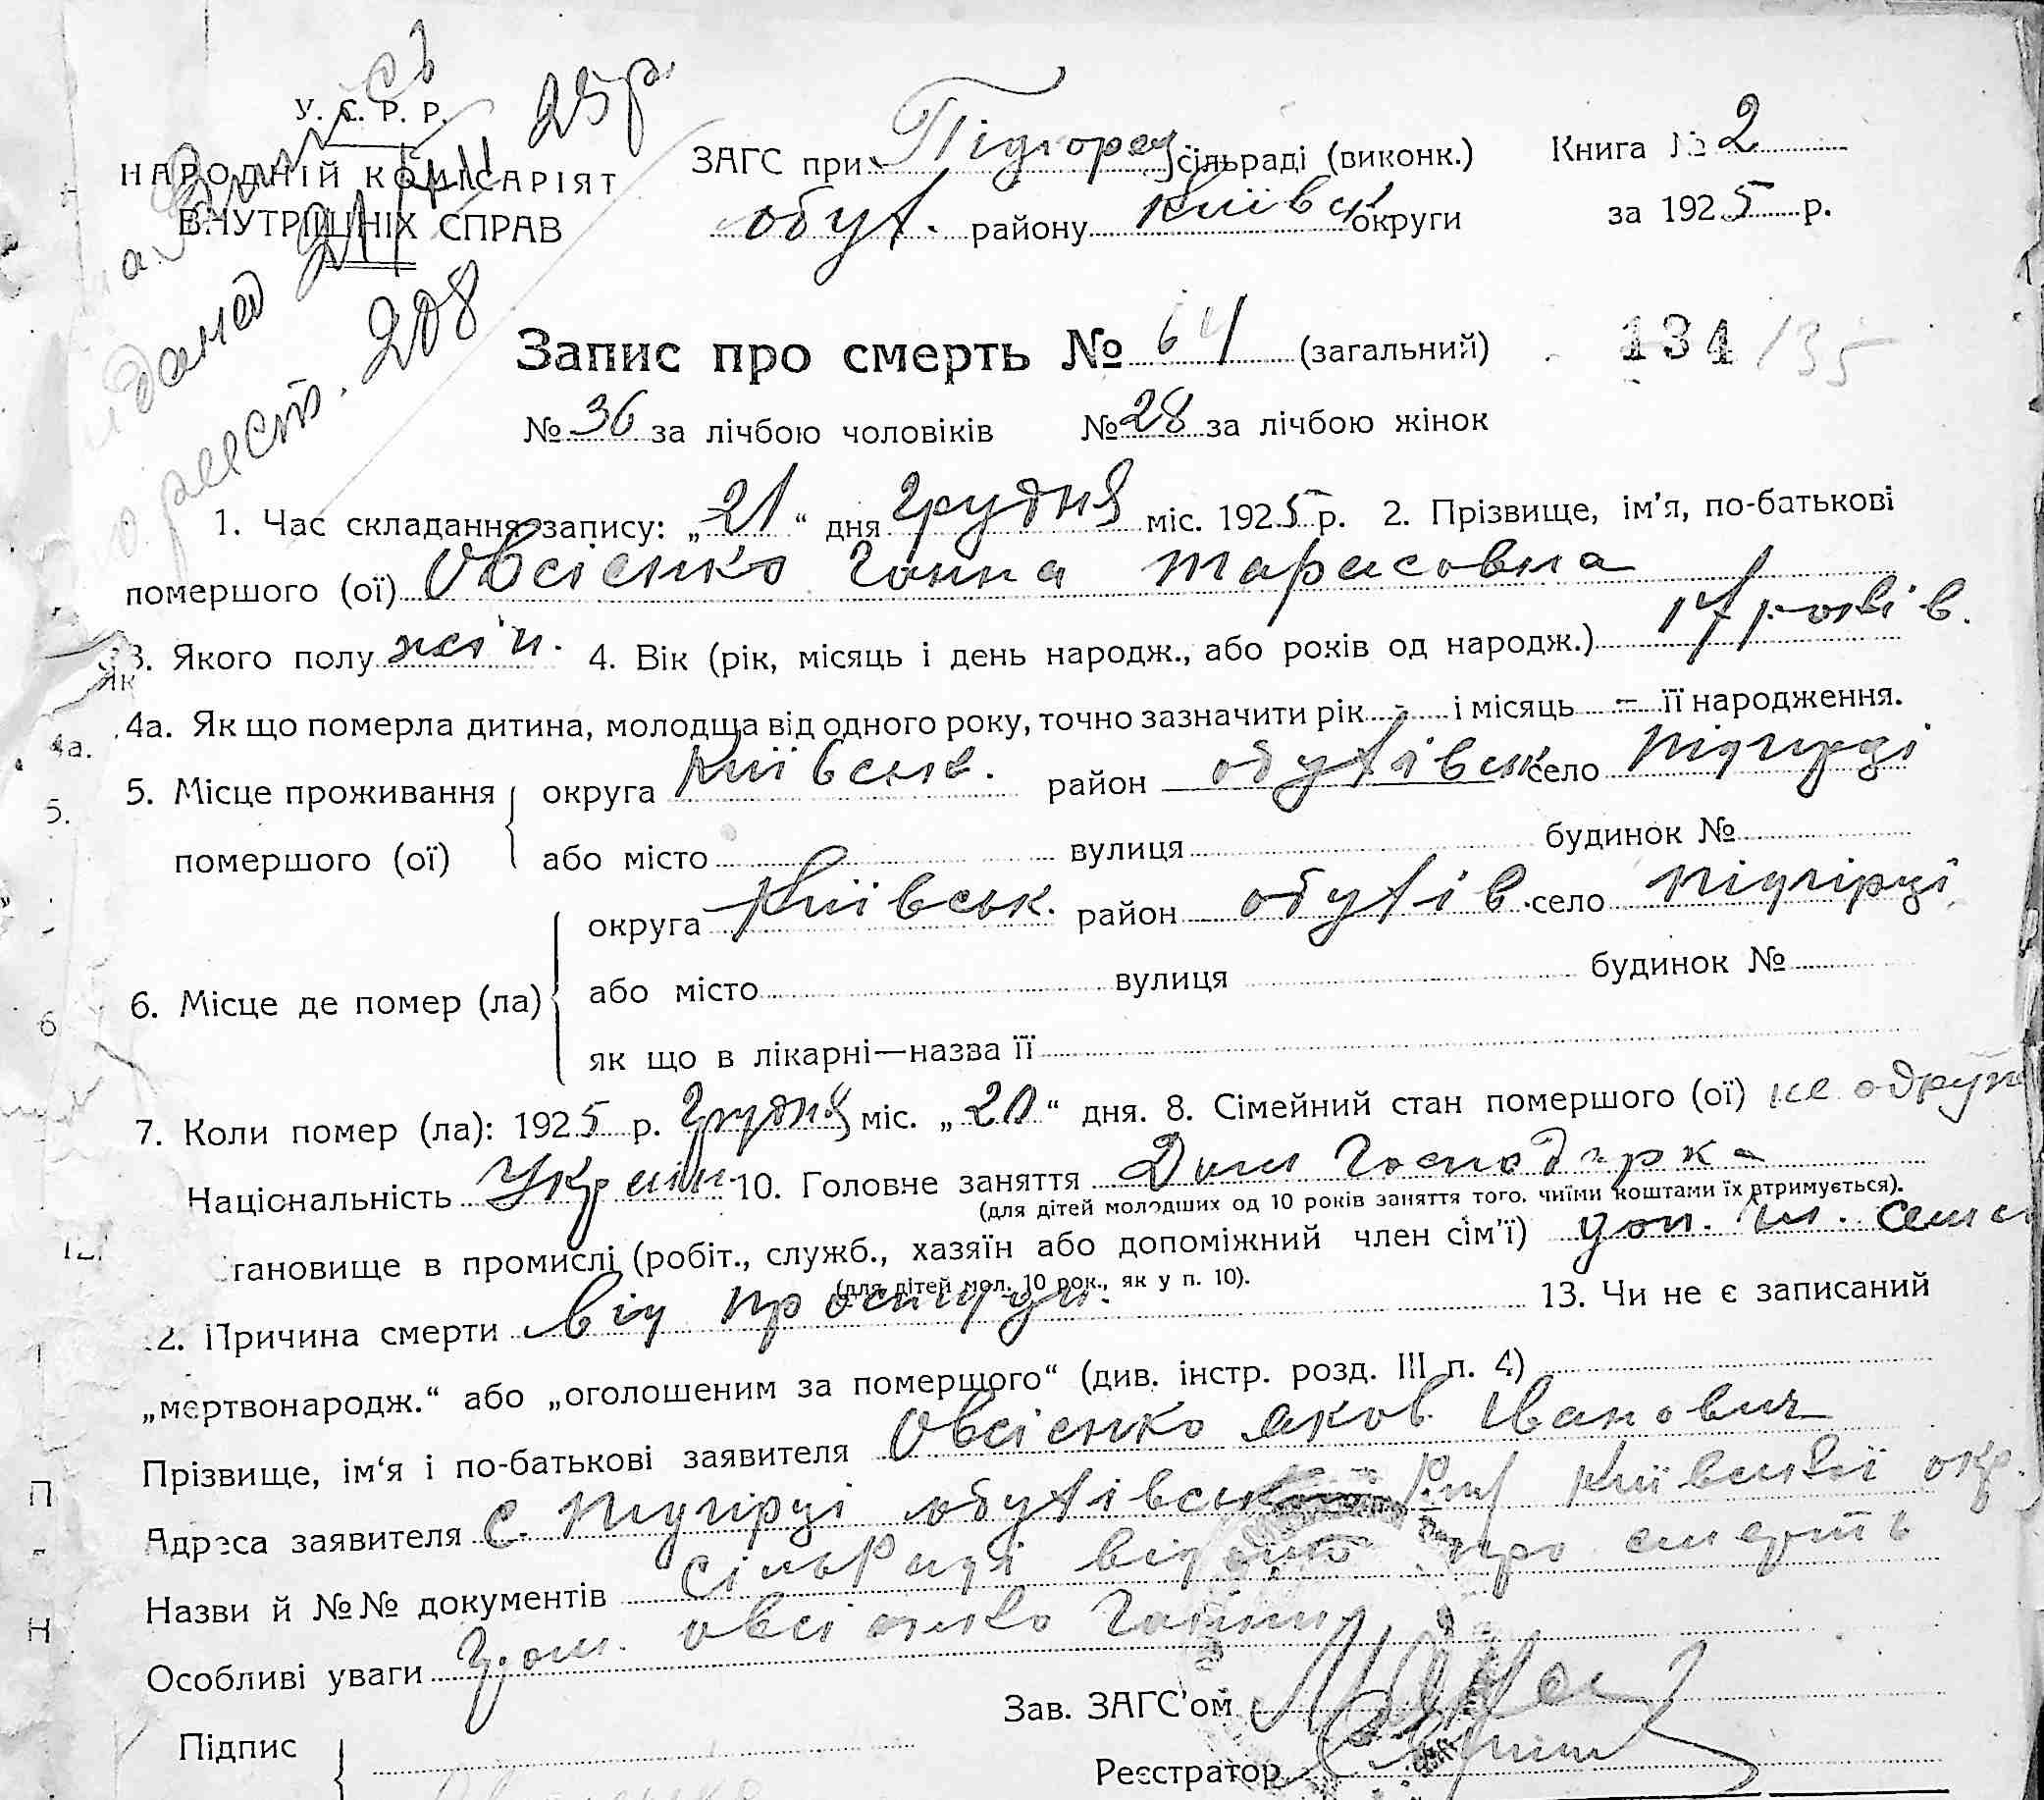 У. С. Р. Р.
НАРОДНІЙ КОМІСАРІЯТ
ВНУТРІШНІХ СПРАВ
25 р.
реєст. 208
ЗАГС при Підгорец. сільраді (виконк.) Книга № 2
обух. району Київськ округи за 1925 р.
Запис про смерть № 64 (загальний) 134 135
№ 36 за лічбою чоловіків № 28 за лічбою жінок
1. Час складання запису: „21“ дня грудня міс. 1925 р. 2. Прізвище, ім’я, по-батькові
помершого (ої) Овсієнко Ганна Тарасовна
3. Якого полу жін. 4. Вік (рік, місяць і день народж., або років од народж.) 17 років.
4а. Як що померла дитина, молодща від одного року, точно зазначити рік - і місяць - її народження.
5. Місце проживання округа Київськ. район обухівськ село Підгірці
помершого (ої) або місто вулиця будинок №
округа Київськ. район обухів. село Підгірці
6. Місце де помер (ла) або місто вулиця будинок №
як що в лікарні—назва її
7. Коли помер (ла): 1925 р. Грудня міс. „20“ дня. 8. Сімейний стан помершого (ої) не одруж
Національність Україн. 10. Головне заняття Дом Господарка
(для дітей молодших од 10 років заняття того, чиїми коштами їх втримується).
тановище в промислі (робіт., служб., хазяїн або допоміжний член сім’ї) доп. чл. семї
(для дітей мол. 10 рок., як у п. 10).
2. Причина смерти від простуди. 13. Чи не є записаний
„мертвонародж.“ або „оголошеним за помершого“ (див. інстр. розд. III п. 4)
Прізвище, ім‘я і по-батькові заявителя Овсієнко Яков Іванович
Адреса заявителя С. Підгірці обухівського Київської окр.
Назви й №№ документів сільради про смерть
Особливі уваги Гром. Овсієнко Ганни
Зав. ЗАГС’ом
Підпис
Реєстратор